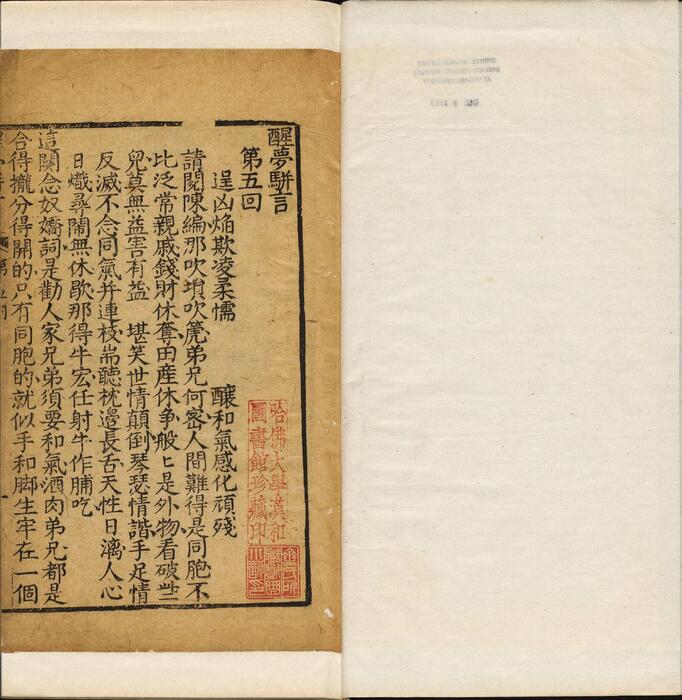 醒夢駢言
第五回
逞凶焰欺凌柔懦　釀和氣感化頑殘
請閱陳編那吹塤吹篪弟兄何密人間難得是同胞不
比泛常親戚錢財休奪田產休爭般〻是外物看破些些
兒莫無益害有益　堪笑世情顛倒琴瑟情諧手足情
反滅不念同氣并連枝耑聽枕邉長舌天性日漓人心
日熾尋鬧無休歇那得牛宏任射牛作脯吃
這闋念奴嬌詞是勸人家兄弟須要和氣酒肉弟兄都是
合得攏分得開的只有同胞的就似手和脚生牢在一個
哈佛大學漢和
圖書館珍藏印